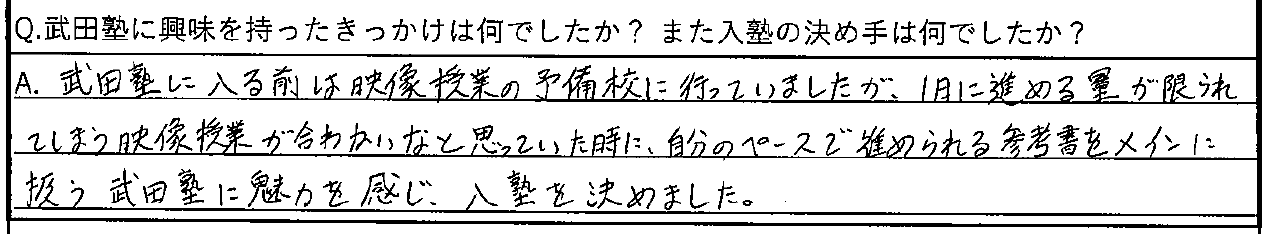 Q.武田塾に興味を持ったきっかけは何でしたか？ また入塾の決め手は何でしたか？
A. 武田塾に入る前は映像授業の予備校に行っていましたが、1月に進める量が限られ
てしまう映像授業が合わないなと思っていた時に、自分のペースで進められる参考書をメインに
扱う武田塾に魅力を感じ、入塾を決めました。